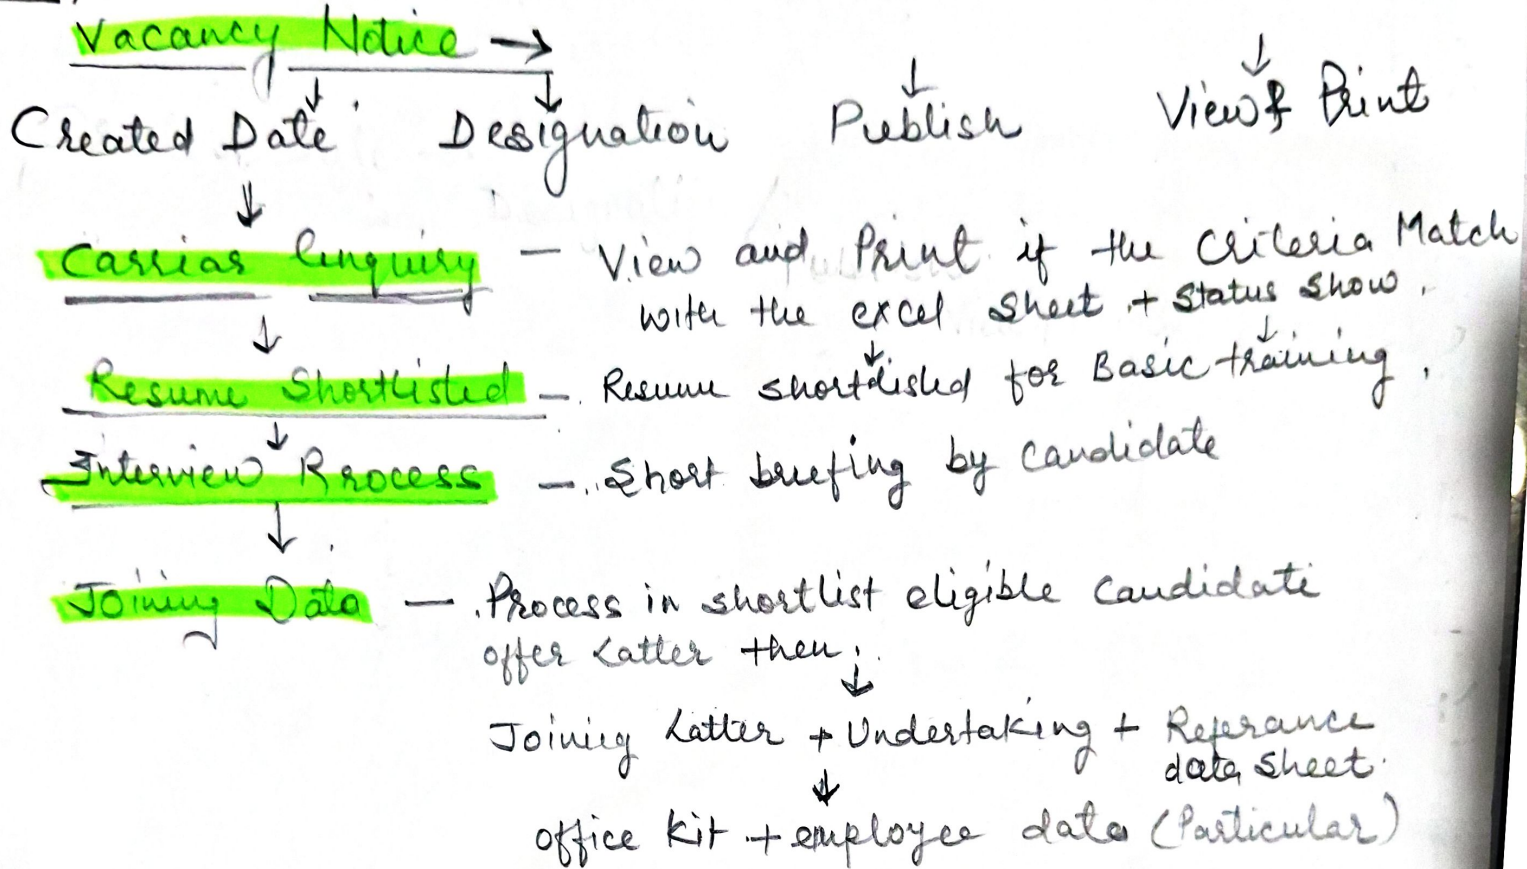 Vacancy Notice →
Created Date Designation Publish View & Print
Carriar Enquiry — View and Print if the Criteria Match
with the excel sheet + status show.
Resume Shortlisted — Resume shortlisted for Basic training.
Interview Process — Short briefing by candidate
Joining Data — Process in shortlist eligible candidate
offer Latter then
Joining Latter + Undertaking + Referance
data sheet.
office kit + employee data (Particular)